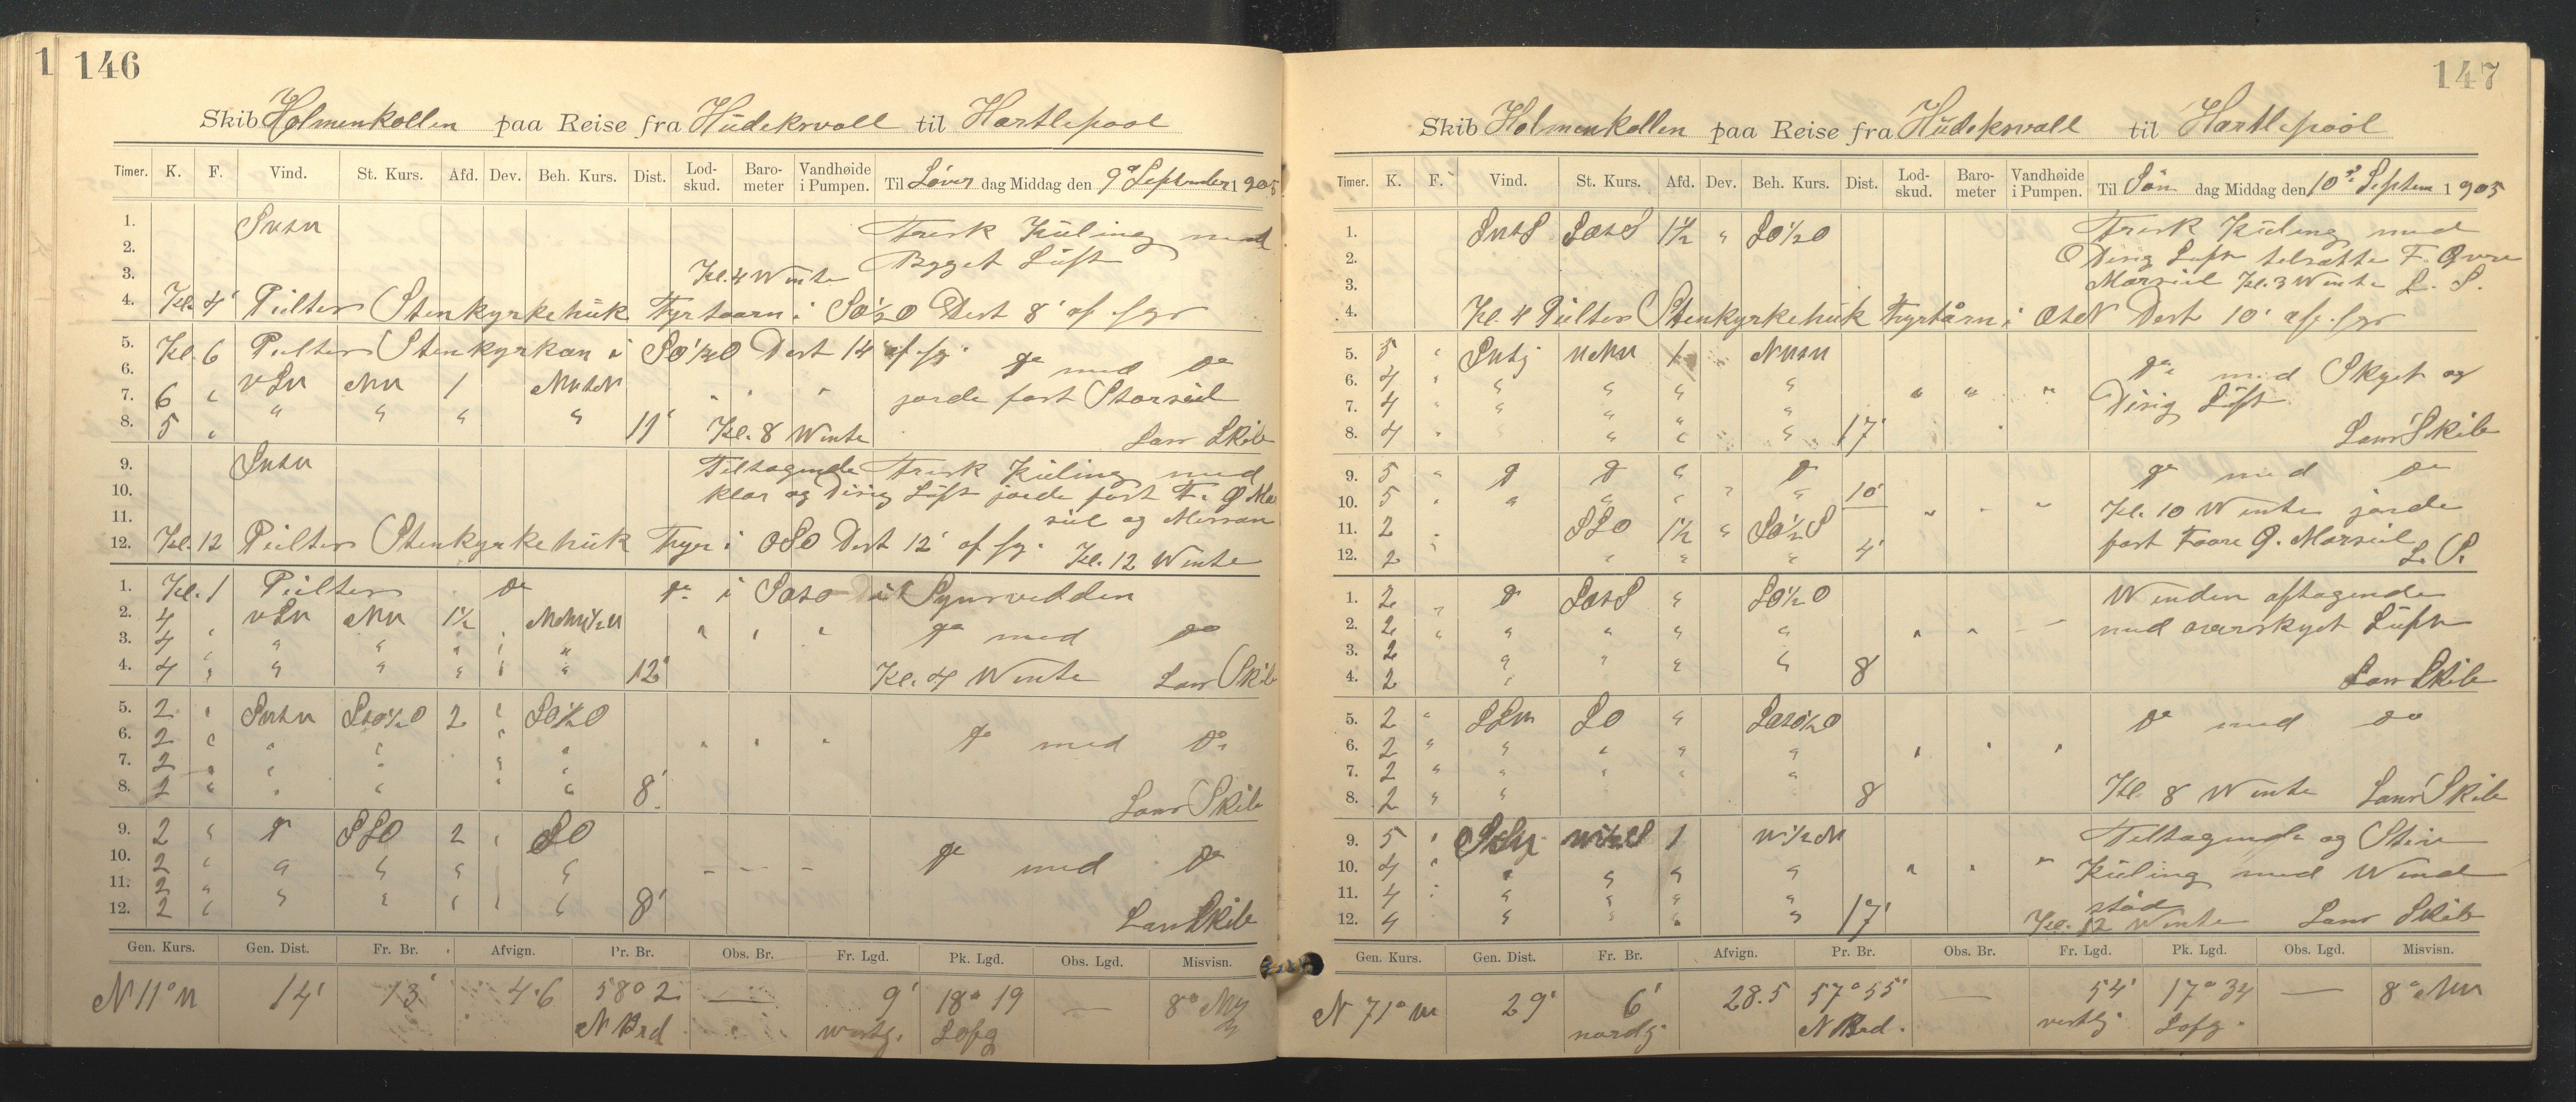 1 146
Skib Holmenkollen paa Reise fra Hüdekrvall til Hartlepool
Timer. K. F. Vind. St. Kurs. Afd. Dev. Beh. Kurs. Dist. Lod-skud. Baro-meter Vandhøide i Pumpen. Til Löver dag Middag den 9de September 1905
1. Svtv Frisk Küling med
2. Bygget Lüft
3. Kl. 4 Winte
4. Kl. 4' Peilter Stenkyrkehük Fyrtaarn i SO½O Dist 8' af fyr
5. Kl. 6 Peilter Stenkyrkan i SO½O Dist 14' af fy.
6. do med do
7. 6 " vSv NV 1 NVtN " " " jorde fast Storseil
8. 5 " " " " " 11' Kl. 8 Winte Lanr Skib
9. Svtv Tiltagende Frisk Küling med
10. klar og Disig Lüft jorde fast F. Ø Mer
11. sul og Mersan
12. Kl. 12 Peilter Stenkyrkehük Fyr i OSO Dist 12' af fy. Kl. 12 Winte
1. Kl. 1 Peilter do do i
2. 4 " vSv NV 1½ NNV½V
3. 4 " " " " " " " " " do med do
4. 4 " " " " " " 12' Kl. 4 Winte Lanr Skib
5. 2 " Svtv StO½O 2 " SO½O
6. 2 " " " " " " " " do med do
7. 2 " " " " "
8. 2 " " " " " 8' Lanr Skib
9. 2 " do SSO 2 " SO
10. 2 " " " " " - - - do med do
11. 2 "
12. 2 " " " " " " 8' Lanr Skib
Gen. Kurs. Gen. Dist. Fr. Br. Afvign. Pr. Br. Obs. Br. Fr. Lgd. Pk. Lgd. Obs. Lgd. Misvisn.
N 11° V 14' 13' 4.6 58° 2 — 9' 18° 19 — 8° NV
N Brd westg. Lofg
147
Skib Holmenkollen paa Reise fra Hüdekrvall til Hartlepool
Timer. K. F. Vind. St. Kurs. Afd. Dev. Beh. Kurs. Dist. Lod-skud. Baro-meter Vandhøide i Pumpen. Til Sön dag Middag den 10de Septem 1905
1. SvtS SOtS 1½ " SO½O Frisk Küling med
2. Disig Lüft tilsatte F. Øvre
3. Marseil Kl. 3 Winte L. S.
4. Kl. 4 Peilter Stenkyrkehük Fyrtårn i OtN Dist 10' af fyr
5. 5 " NNV 1 NVtV
6. 4 " " " " " " " " do med Skyet og
7. 4 " " " " " Disig Lüft
8. 4 " " " " 17' Lanr Skib
9. 5 " do do " do do med do
10. 5 " " " " " " 10' Kl. 10 Winte jorde
11. 2 " SSO 1½ " SO½S fast Faare Ø. Marseil
12. 2 " " " " 4' L. S.
1. 2 " do SOtS " SO½O Winden aftagende
2. 2 " " " " " " " med overskyet Lüft
3. 2
4. 2 " " " " 8 Lanr Skib
5. 2 " SSv SO " do med do
6. 2 " " " " " " " "
7. 2 " " " " "
8. 2 " " 8 Kl. 8 Winte Lanr Skib
9. 5 " 1 V½N Tiltagende og Stiv
10. 4 " " " " " " " " Küling med Wind
11. 4 " " " " stød
12. 4 " " " " 17' Kl. 12 Winte Lanr Skib
Gen. Kurs. Gen. Dist. Fr. Br. Afvign. Pr. Br. Obs. Br. Fr. Lgd. Pk. Lgd. Obs. Lgd. Misvisn.
N 71° V 29' 6' 28.5 57° 55' — 54' 17° 34 — 8° NV
nordg. N Brd. vestlg. Lofg.